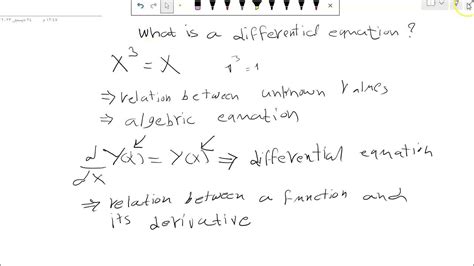 What is a differential equation ?
X³ = X    1³ = 1
⇒ relation between unknown values
⇒ algebric equation
d/dx Y(x) = Y(x) ⇒ differential equation
⇒ relation between a function and
its derivative